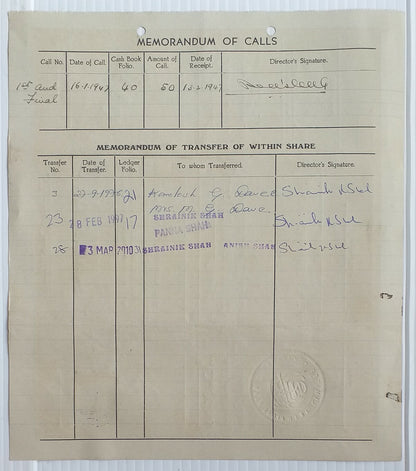 MEMORANDUM OF CALLS
Call No. Date of Call. Cash Book Folio. Amount of Call. Date of Receipt. Director's Signature.
1st and Final 16-1-1947 40 50 15-2-1947
MEMORANDUM OF TRANSFER OF WITHIN SHARE
Transfer No. Date of Transfer. Ledger Folio. To whom Transferred. Director's Signature.
3 21 Kamlesh G. Davee
Mrs. M. G. Dave
23 28 FEB 1997 17 SHRAINIK SHAH
PANNA SHAH
28 3 MAR 2010 31 SHRAINIK SHAH ANISH SHAH